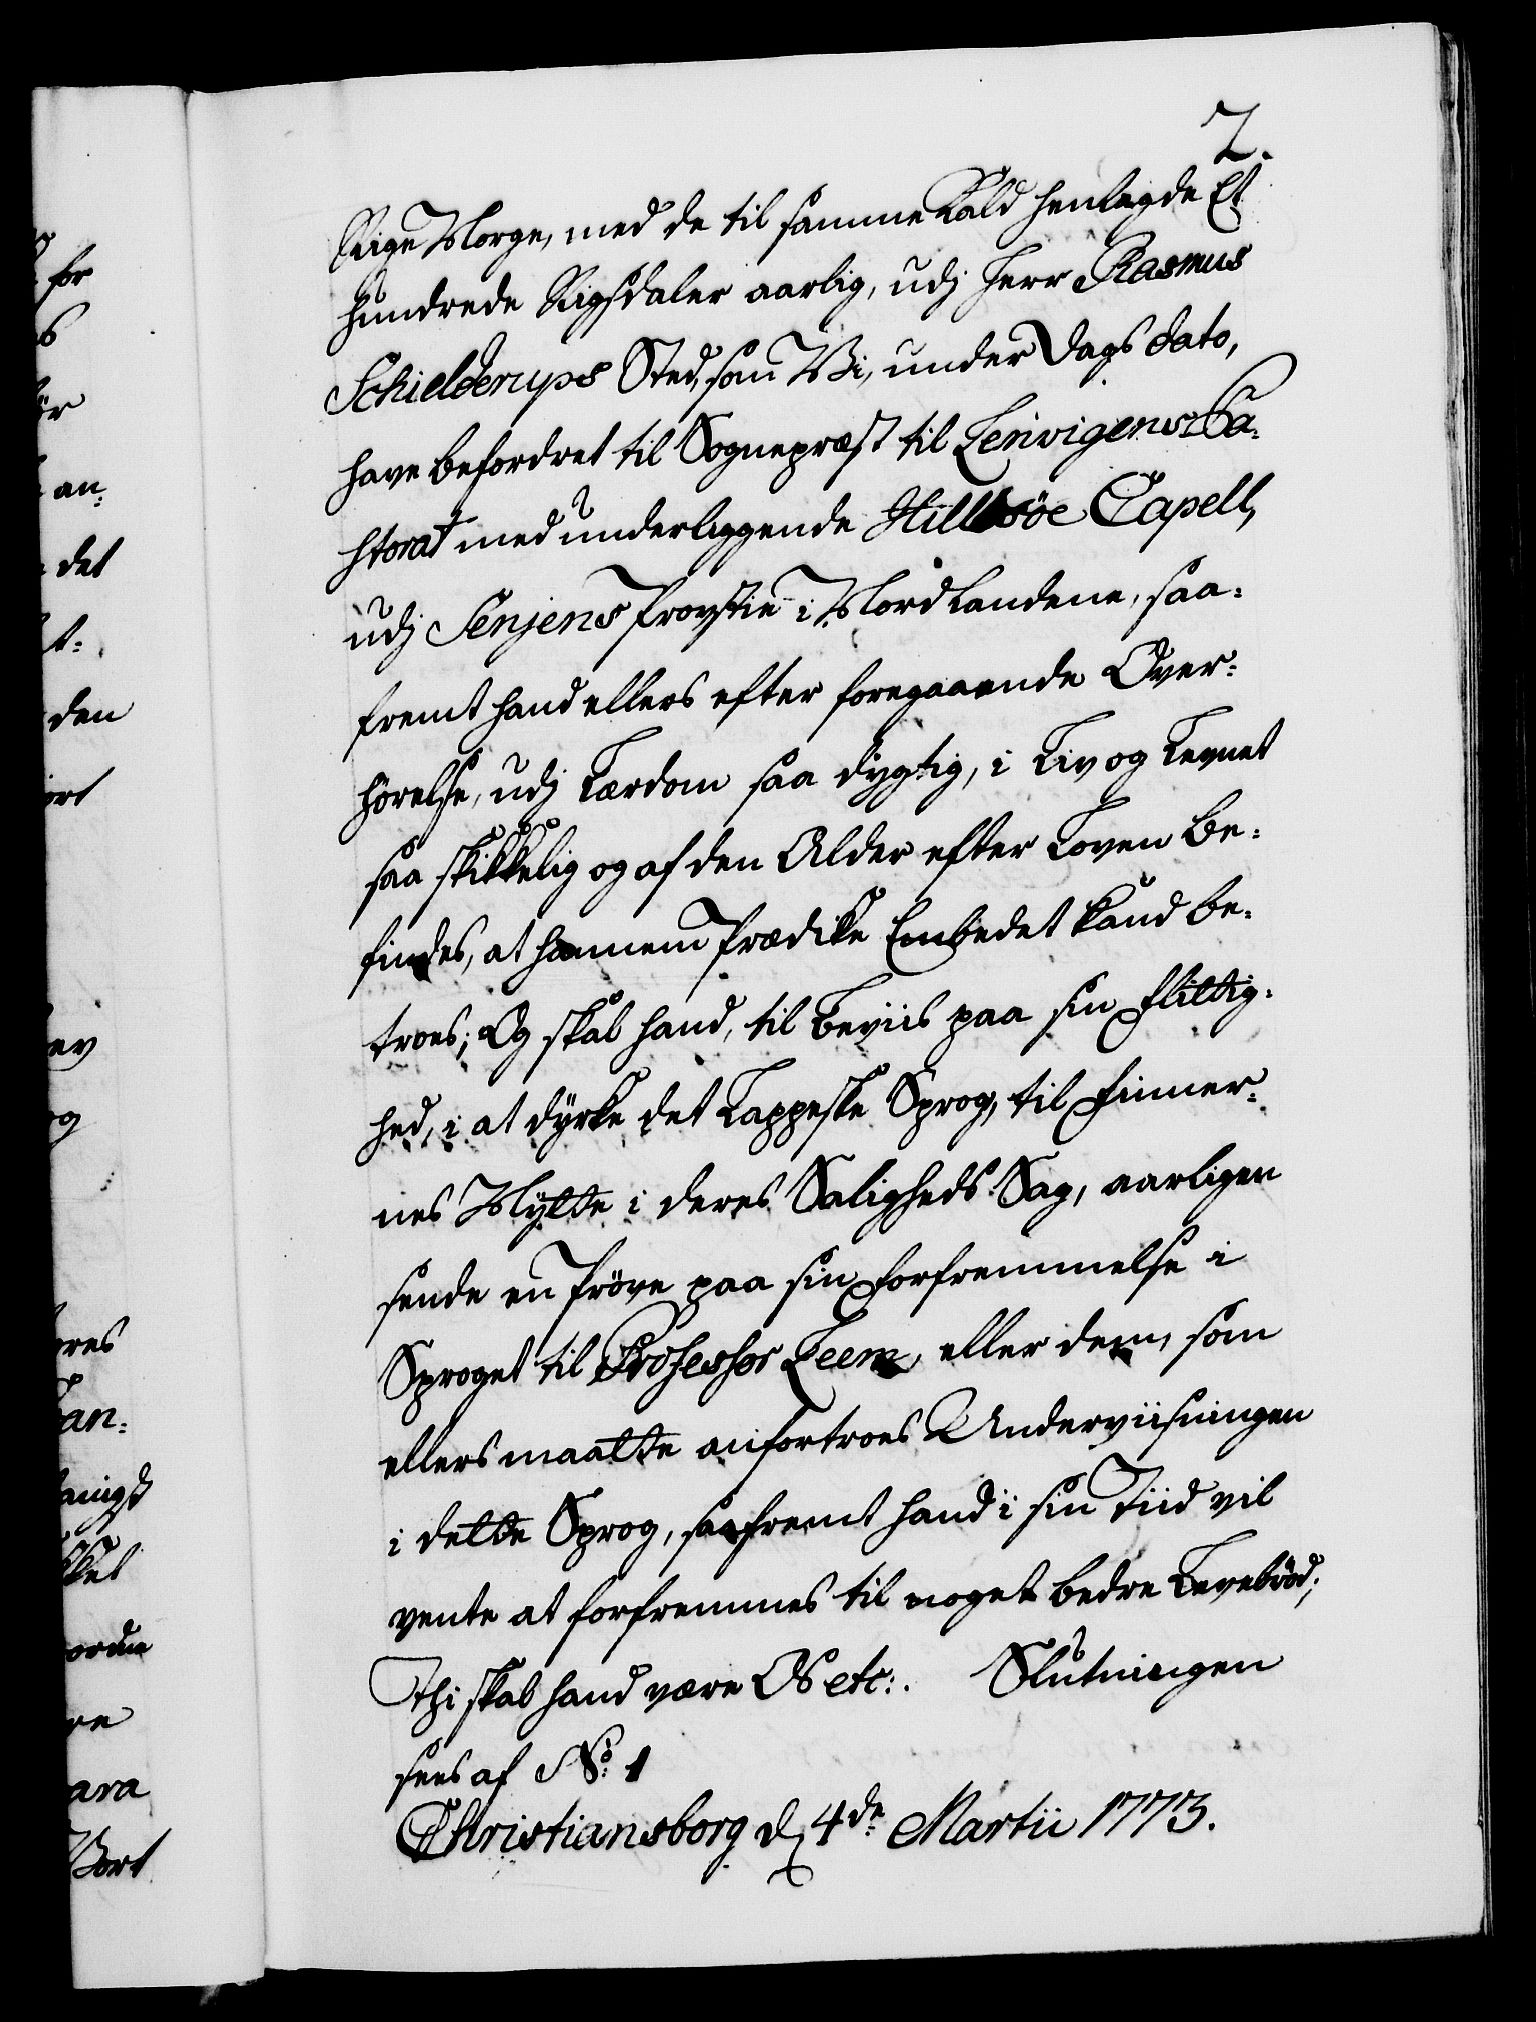 2.
Rige Norge, med de til samme Kald henlagde Et
hundrede Rigsdaler aarlig, udj Herr Rasmus
Schielderups Sted, som Vi, under Dags dato,
have befordret til Sognepræst til Lenvigens Pa-
storat med underliggende Hillesöe Capell,
udj Senjens Provstie i Nordlandene, saa-
fremt hand ellers efter foregaaende Over-
hörelse, udj Lærdom saa dygtig, i Liv og Levnet
saa skikkelig og af den Alder efter Loven be-
findes, at hannem Prædike Embedet kand be-
troes; Og skal hand, til Beviis paa sin Flittig-
hed, i at dyrke det Lappeske Sprog, til Finner-
nes Nytte i deres Saligheds Sag, aarligen
sende en Pröve paa sin Forfremmelse i
Sproget til Professor Leem, eller dem, som
ellers maatte anfortroes Underviisningen
i dette Sprog, saafremt hand i sin Tiid vil
vente at forfremmes til noget bedre Levebröd;
Thi skal hand være Os etc:. Slutningen
sees af No: 1
Christiansborg d. 4de Martii 1773.
for
an-
det
t-
den
ort
ev
og
an-
re
ara
Bort